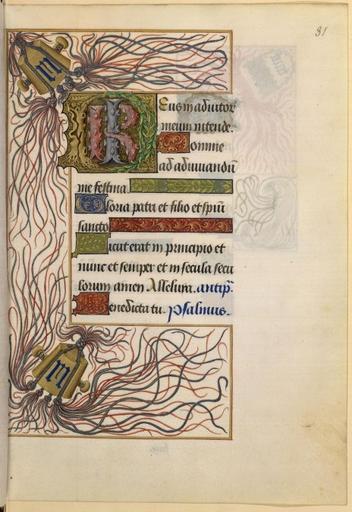 31
Deus in adiutor
meum intende.
Domine
ad adiuuandū
me festina.
Gloria patri et filio et spiri
sancto
Sicut erat in principio et
nunc et semper et in secula secu
lorum amen Alleluia. antiph.
Benedicta tu. psalmus.
M
M